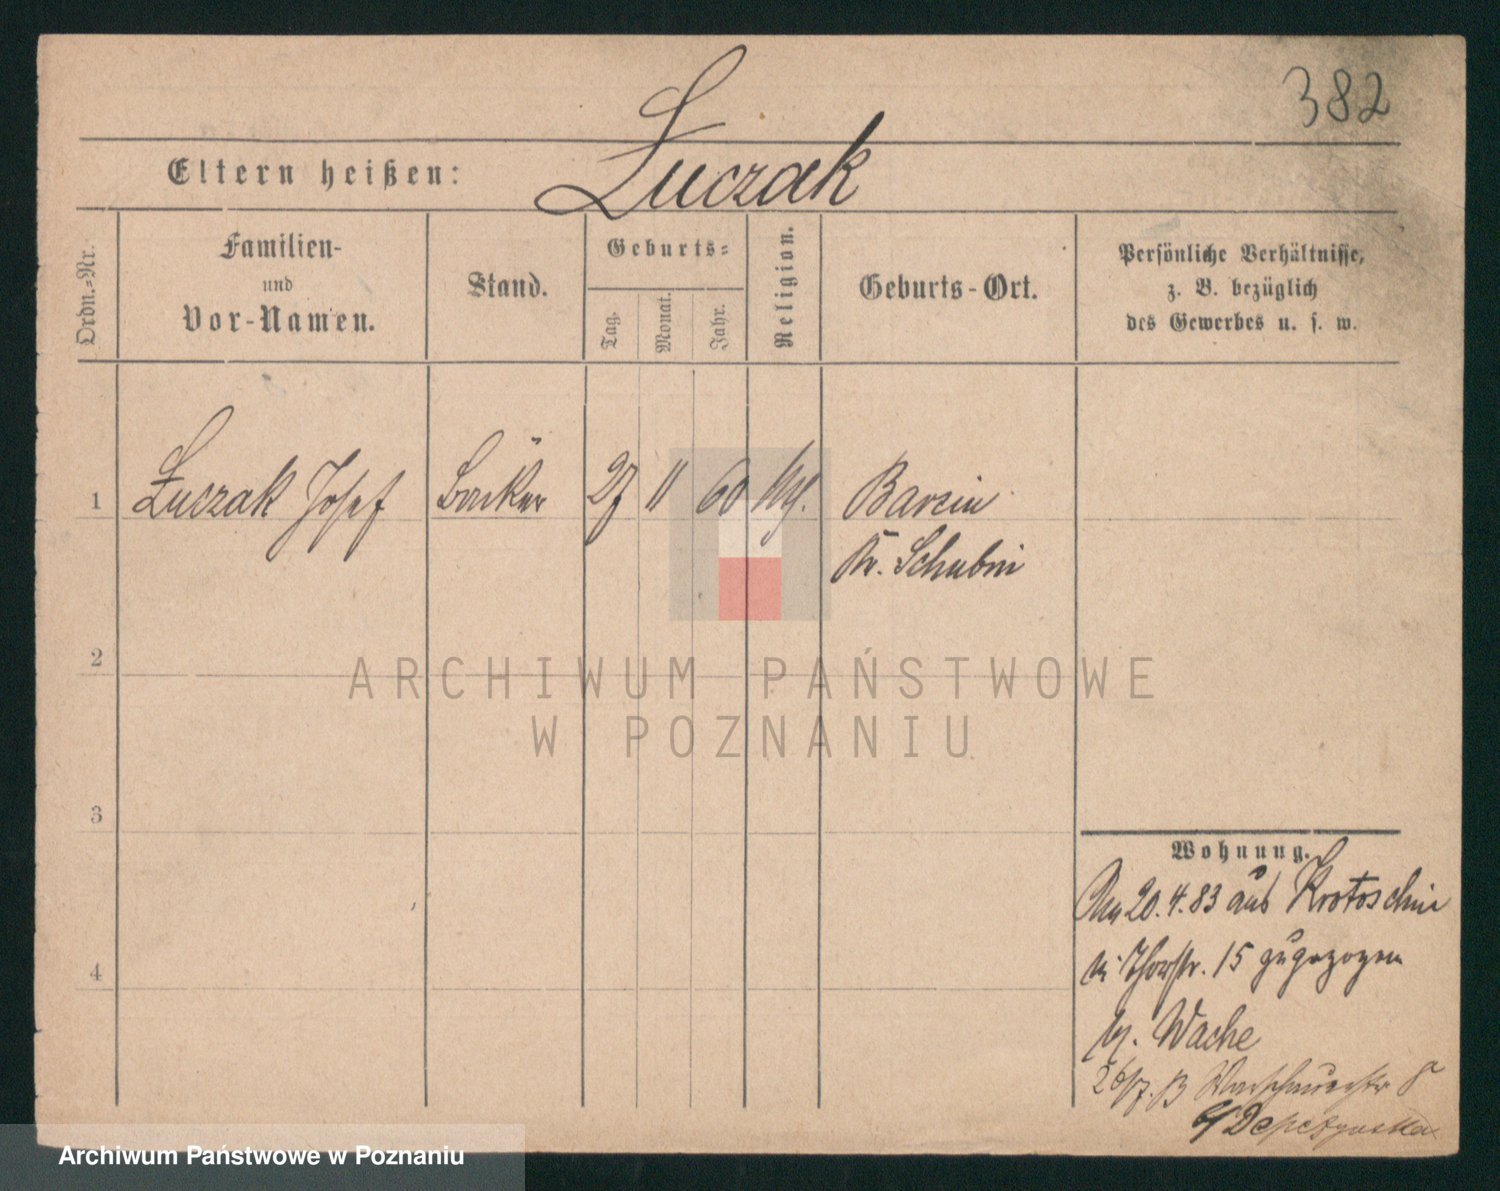 382
Eltern heißen: Łuczak
Ordn.-Nr.
Familien-
und
Vor-Namen.
Stand.
Geburts-
Tag.
Monat.
Jahr.
Religion.
Geburts-Ort.
Persönliche Verhältnisse,
z. B. bezüglich
des Gewerbes u. s. w.
1 Łuczak Josef Bäcker 27 11 60 Barcin
Kr. Schubin
2
ARCHIWUM PAŃSTWOWE
W POZNANIU
3
4
Wohnung.
20.4.83 aus Krotoschin
15 zugezogen
Wache
Warschauerstr 8
Archiwum Państwowe w Poznaniu